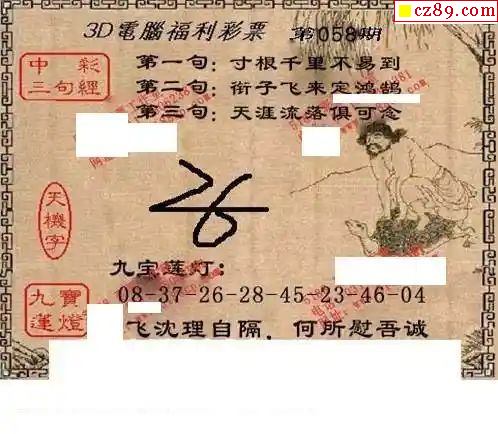 cz89.com
3D電腦福利彩票 第058期
中彩
三句經
第一句：寸根千里不易到
第二句：銜子飞来定鸿鹄
第三句：天涯流落俱可念
天機字
26
九宝莲灯：
九寶
蓮燈
08-37-26-28-45-23-46-04
飞沈理自隔．何所慰吾诚